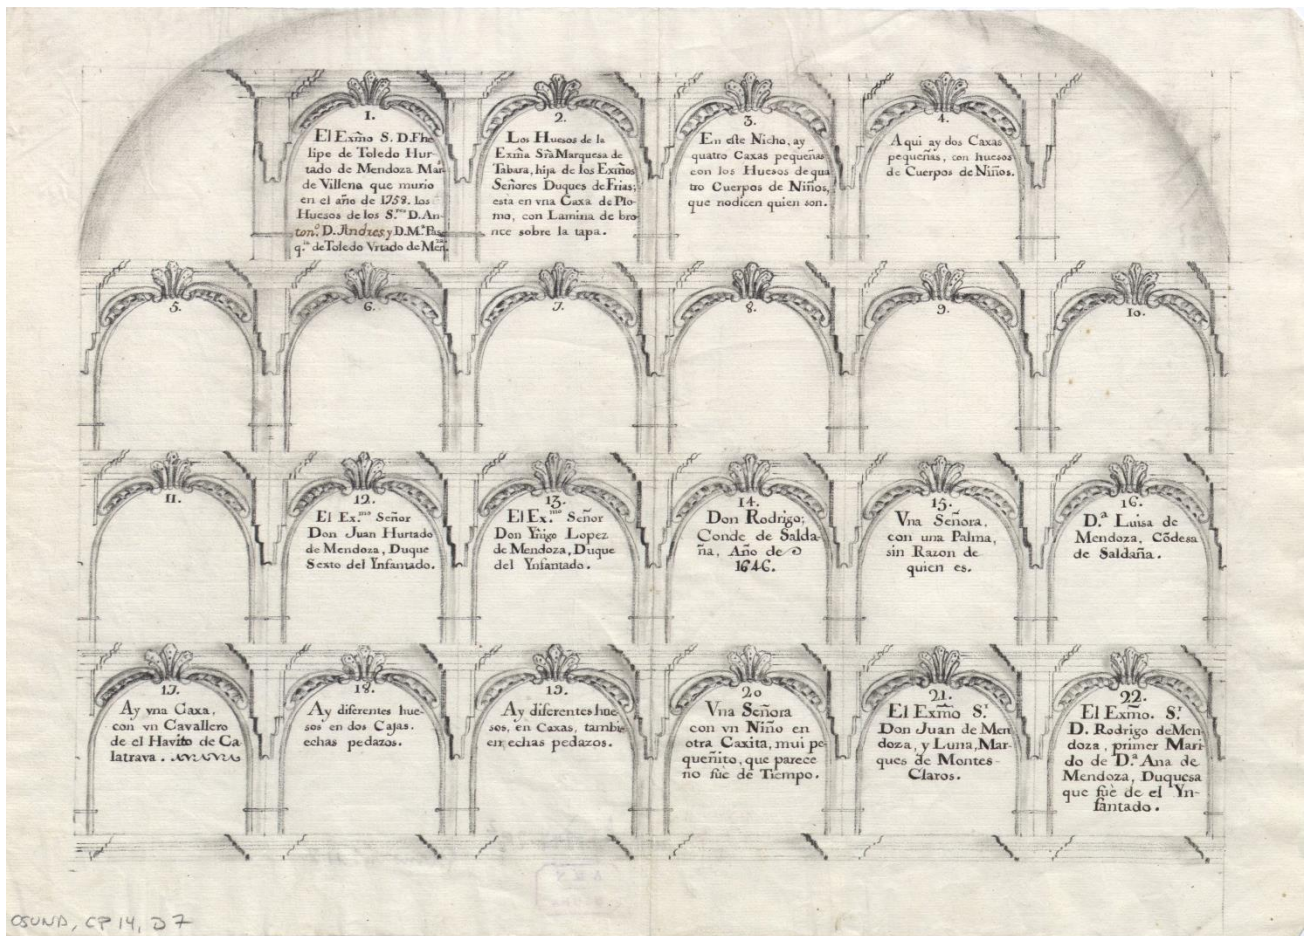 1.
El Exm̃o S. D. Phe
lipe de Toledo Hur-
tado de Mendoza Mar
de Villena que murio
en el año de 1758. los
Huesos de los S.res D. An-
ton.o D. Andres, y D. M.a
q.la de Toledo Vrtado de Men.
2.
Los Huesos de la
Exm̃a Srã Marquesa de
Tabara, hija de los Exm̃os
Señores Duques de Frias;
esta en vna Caxa de Plo-
mo, con Lamina de bro
nce sobre la tapa.
3.
En este Nicho, ay
quatro Caxas pequeñas
con los Huesos de qua
tro Cuerpos de Niños,
que nodicen quien son.
4.
Aqui ay dos Caxas
pequeñas, con huesos
de Cuerpos de Niños.
5.
6.
7.
8.
9.
10.
11.
12.
El Ex.mo Señor
Don Juan Hurtado
de Mendoza, Duque
Sexto del Ynfantado.
13.
El Ex.mo Señor
Don Yñigo Lopez
de Mendoza, Duque
del Ynfantado.
14.
Don Rodrigo;
Conde de Salda-
ña, Año de
1646.
15.
Vna Señora,
con una Palma,
sin Razon de
quien es.
16.
D.a Luisa de
Mendoza, Cõdesa
de Saldaña.
17.
Ay vna Caxa,
con vn Cavallero
de el Havito de Ca
latrava.
18.
Ay diferentes hue-
sos en dos Cajas.
echas pedazos.
19.
Ay diferentes hue
sos, en Caxas, tambi
en echas pedazos.
20
Vna Señora
con vn Niño en
otra Caxita, mui pe
queñito, que parece
no fùe de Tiempo.
21.
El Exm̃o S.r
Don Juan de Men
doza, y Luna, Mar-
ques de Montes-
Claros.
22.
El Exm̃o. S.r
D. Rodrigo deMen
doza, primer Mari
do de D.a Ana de
Mendoza, Duquesa
que fùe de el Yn-
fantado.
OSUNA, CP 14, D 7